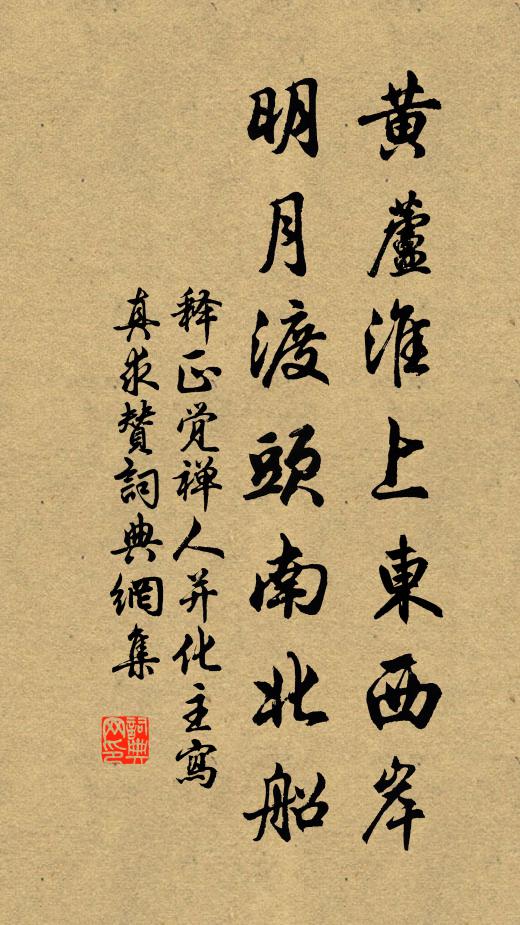 黄蘆淮上東西岸
明月渡頭南北船
释正觉禅人并化主寫
真求賛詞典網集
詞典網印